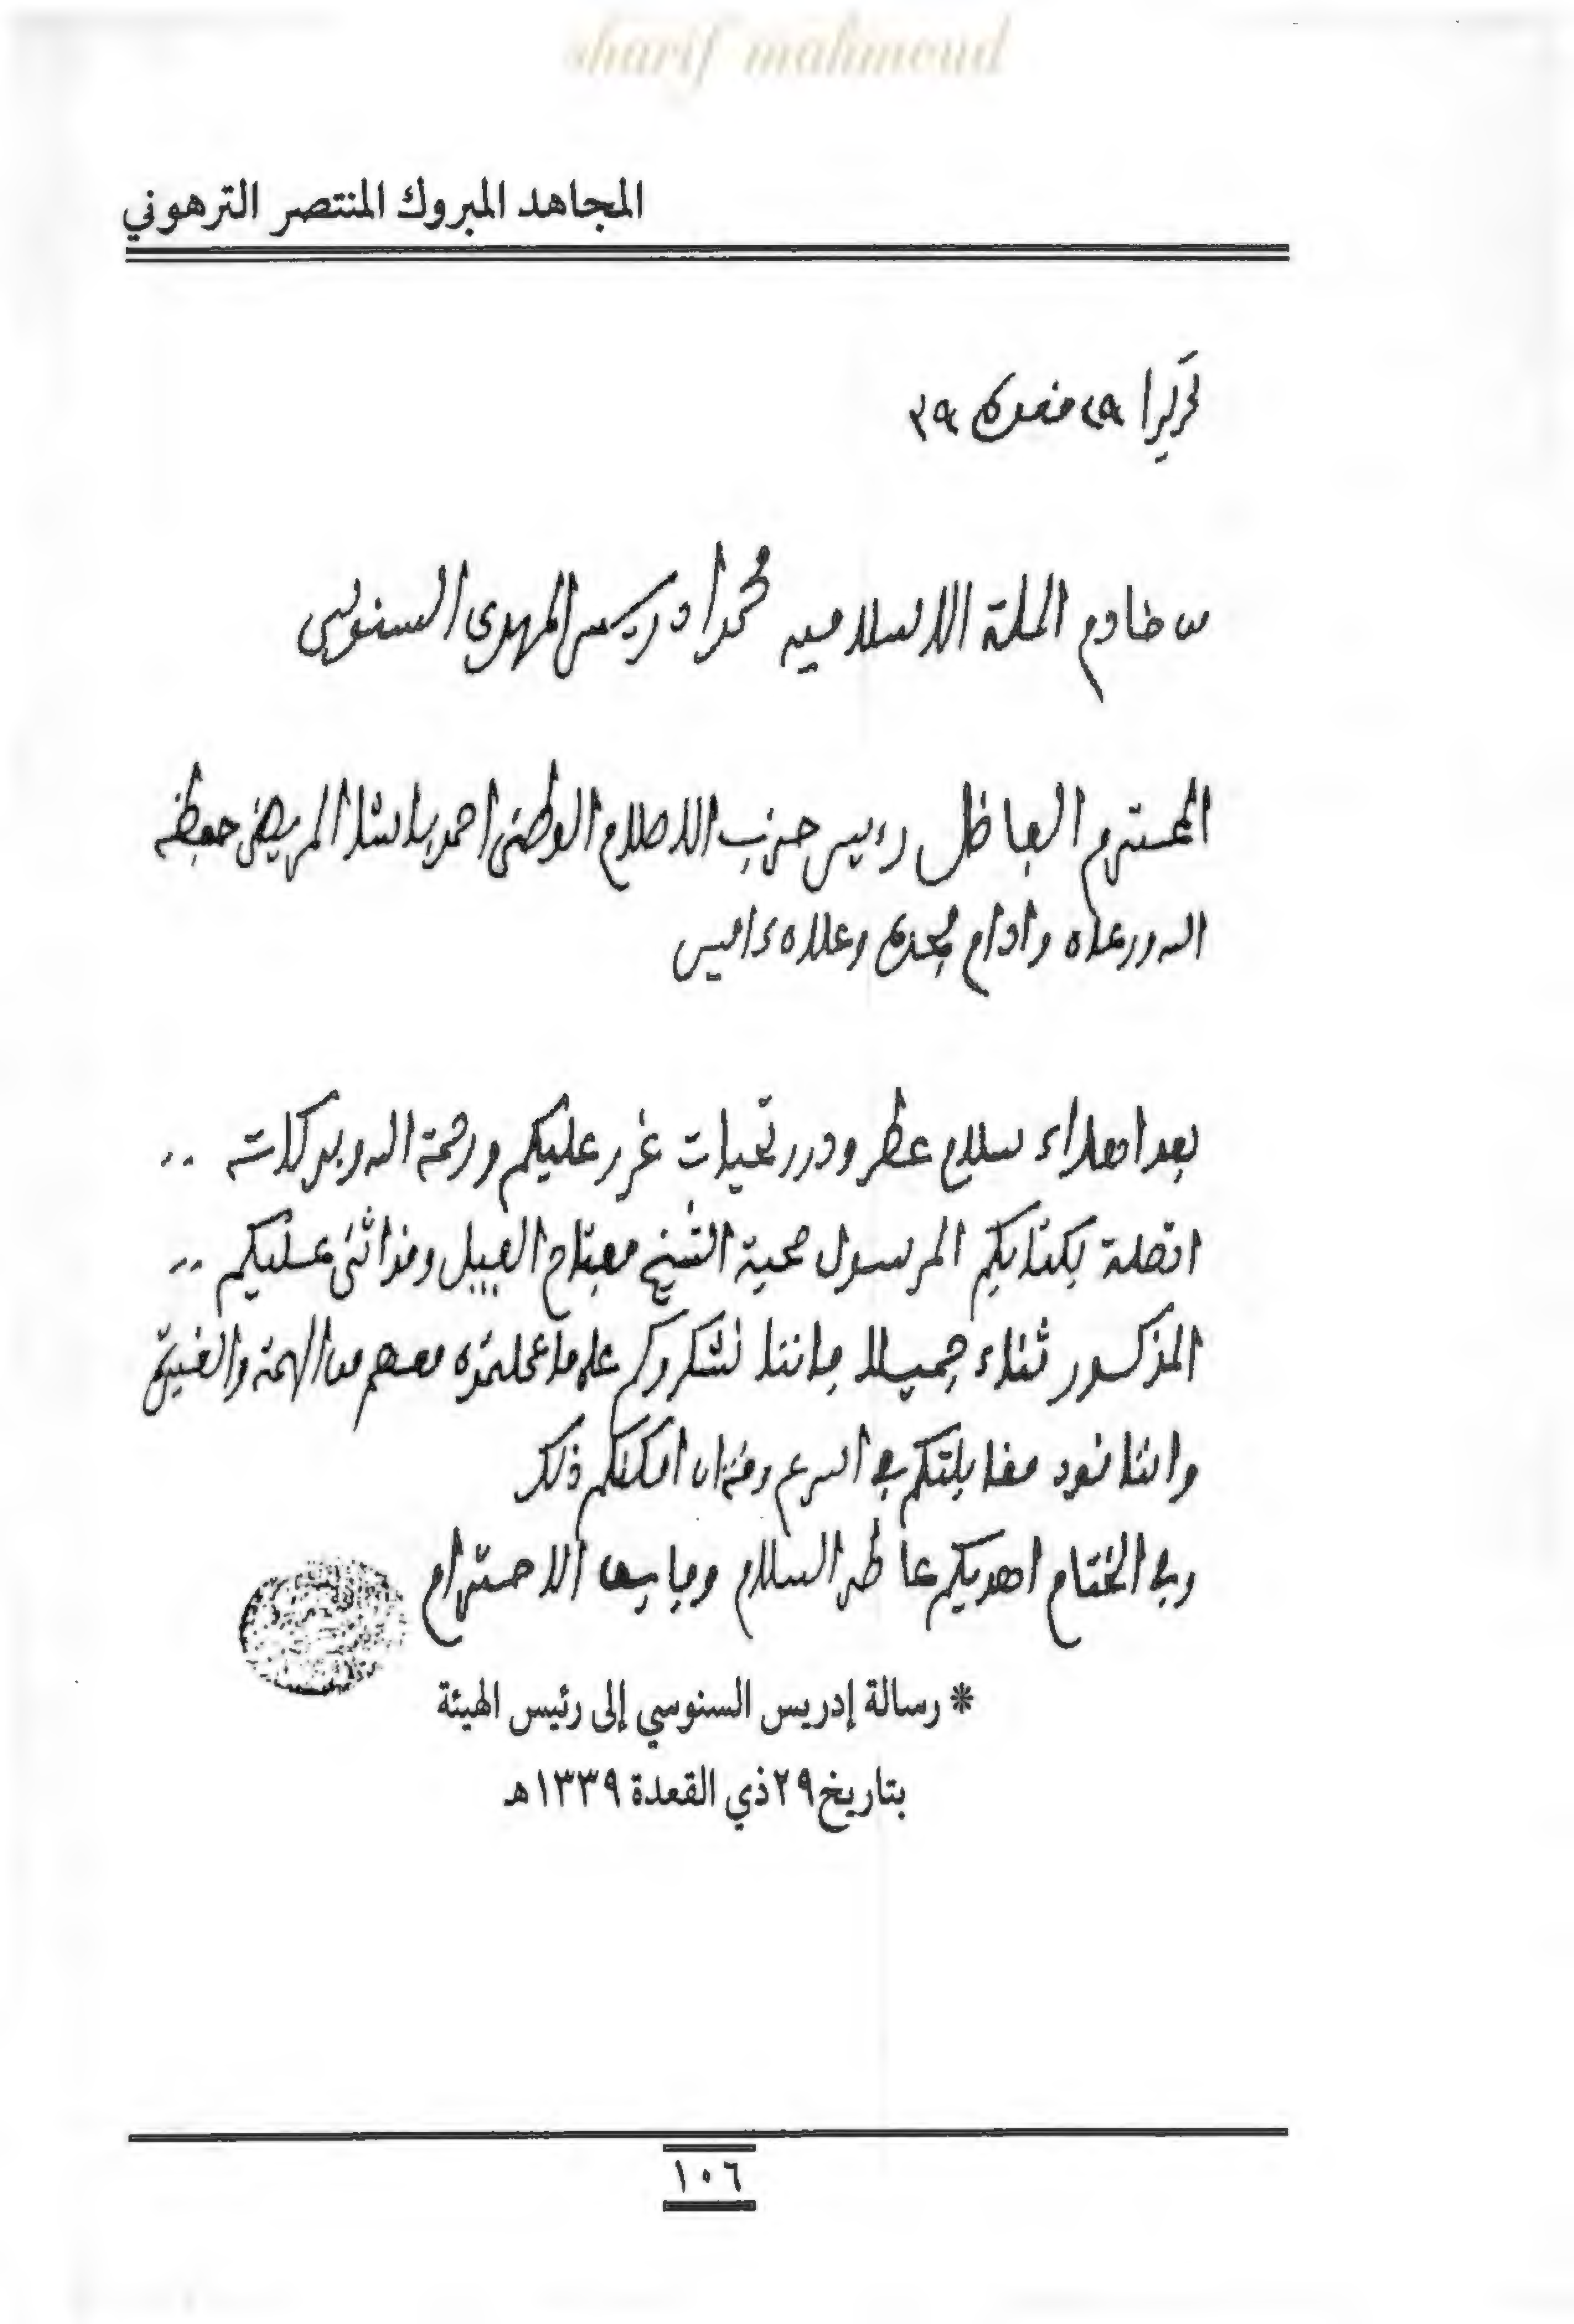 sharif mahmoud
المجاهد المبروك المنتصر الترهوني
تحريرا ٢٩ قعدة ٣٩
من خادم الملة الاسلاميه محمد ادريس المهدي السنوسي
المحترم الفاظل رءيس حزب الاصلاح الوطني احمد باشا المريض حفظه
الله ورعاه وادام مجده وعلاه ءامين
بعد اهداء سلام عطر ودرر تحيات غرر عليكم ورحمة الله وبركاته ..
اتصلة بكتابكم المرسول صحبة الشيخ مفتاح وقد اثنى عليكم ..
المذكور ثناء جميلا فاننا نشكروكم على ما عملتموه معهم من الهمة والضيق
واننا نود مقابلتكم في اسرع وقت ان امكنكم ذلك
وفي الختام اهديكم عاطر السلام وفايق الاحترام
* رسالة إدريس السنوسي إلى رئيس الهيئة
بتاريخ ٢٩ ذي القعدة ١٣٣٩هـ
١٠٦